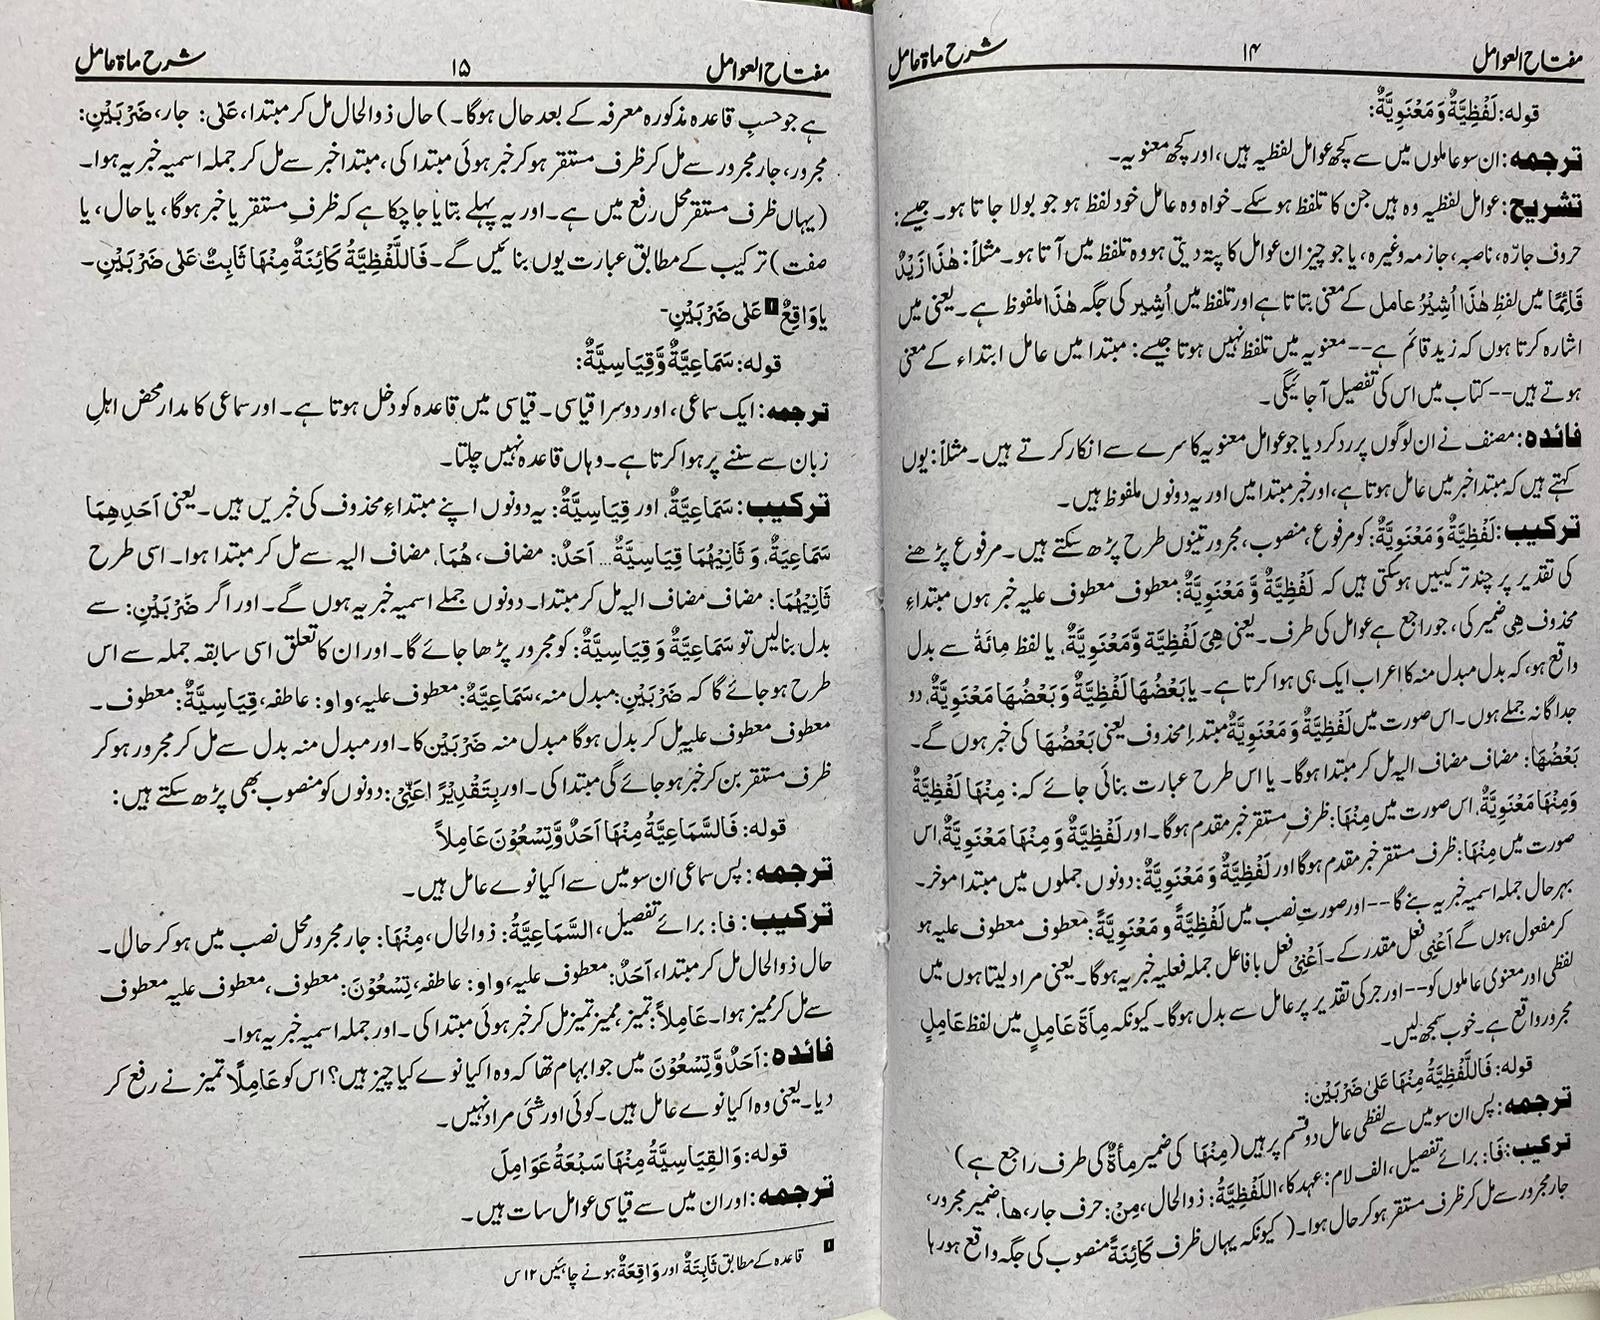 مفتاح العوامل ۱۴ شرح مأۃ عامل
قولہ: لَفْظِیَّۃٌ وَمَعْنَوِیَّۃٌ:
ترجمہ: ان سو عاملوں میں سے کچھ عوامل لفظیہ ہیں، اور کچھ معنویہ۔
تشریح: عوامل لفظیہ وہ ہیں جن کا تلفظ ہو سکے۔ خواہ وہ عامل خود لفظ ہو جو بولا جاتا ہو۔ جیسے:
حروف جارّہ، ناصبہ، جازمہ وغیرہ، یا جو چیز ان عوامل کا پتہ دیتی ہو وہ تلفظ میں آتا ہو۔ مثلاً: ھٰذَا زَیْدٌ
قَائِمًا میں لفظِ ھٰذَا اُشِیْرُ عامل کے معنی بتاتا ہے اور تلفظ میں اُشِیر کی جگہ ھٰذَا ملفوظ ہے۔ یعنی میں
اشارہ کرتا ہوں کہ زید قائم ہے-- معنویہ میں تلفظ نہیں ہوتا جیسے: مبتدا میں عامل ابتداء کے معنی
ہوتے ہیں-- کتاب میں اس کی تفصیل آ جائیگی۔
فائدہ: مصنف نے ان لوگوں پر رد کر دیا جو عوامل معنویہ کا سرے سے انکار کرتے ہیں۔ مثلاً: یوں
کہتے ہیں کہ مبتدا خبر میں عامل ہوتا ہے، اور خبر مبتدا میں اور یہ دونوں ملفوظ ہیں۔
ترکیب: لَفْظِیَّۃٌ وَمَعْنَوِیَّۃٌ: کو مرفوع، منصوب، مجرور تینوں طرح پڑھ سکتے ہیں۔ مرفوع پڑھنے
کی تقدیر پر چند ترکیبیں ہو سکتی ہیں کہ لَفْظِیَّۃٌ وَّمَعْنَوِیَّۃٌ: معطوف معطوف علیہ خبر ہوں مبتداءِ
محذوف ھِیَ ضمیر کی، جو راجع ہے عوامل کی طرف۔ یعنی ھِیَ لَفْظِیَّۃٌ وَّمَعْنَوِیَّۃٌ، یا لفظ مِائَۃُ سے بدل
واقع ہو، کہ بدل مبدل منہ کا اعراب ایک ہی ہوا کرتا ہے۔ یا بَعْضُھَا لَفْظِیَّۃٌ وَبَعْضُھَا مَعْنَوِیَّۃٌ، دو
جداگانہ جملے ہوں۔ اس صورت میں لَفْظِیَّۃٌ وَمَعْنَوِیَّۃٌ مبتداءِ محذوف یعنی بَعْضُھَا کی خبر ہوں گے۔
بَعْضُھَا: مضاف مضاف الیہ مل کر مبتدا ہوگا۔ یا اس طرح عبارت بنائی جائے کہ: مِنْھَا لَفْظِیَّۃٌ
وَمِنْھَا مَعْنَوِیَّۃٌ، اس صورت میں مِنْھَا: ظرف مستقر خبر مقدم ہوگا۔ اور لَفْظِیَّۃٌ وَمِنْھَا مَعْنَوِیَّۃٌ، اس
صورت میں مِنْھَا: ظرف مستقر خبر مقدم ہوگا اور لَفْظِیَّۃٌ وَ مَعْنَوِیَّۃٌ: دونوں جملوں میں مبتدا موخر۔
بہر حال جملہ اسمیہ خبریہ بنے گا-- اور صورتِ نصب میں لَفْظِیَّۃً وَمَعْنَوِیَّۃً: معطوف معطوف علیہ ہو
کر مفعول ہوں گے اَعْنِی فعل مقدر کے۔ اَعْنِیْ فعل با فاعل جملہ فعلیہ خبریہ ہوگا۔ یعنی مراد لیتا ہوں میں
لفظی اور معنوی عاملوں کو-- اور جر کی تقدیر پر عامل سے بدل ہوگا۔ کیونکہ مِأۃَ عَامِلٍ میں لفظ عَامِلٍ
مجرور واقع ہے۔ خوب سمجھ لیں۔
قولہ: فَاللَّفْظِیَّۃُ مِنْھَا عَلٰی ضَرْبَیْنِ:
ترجمہ: پس ان سو میں سے لفظی عامل دو قسم پر ہیں (مِنْھَا کی ضمیر مِأۃٌ کی طرف راجع ہے)
ترکیب: فَا: برائے تفصیل، الف لام: عہد کا، اللَّفْظِیَّۃُ: ذوالحال، مِنْ: حرف جار، ھا، ضمیر مجرور،
جار مجرور سے مل کر ظرف مستقر ہو کر حال ہوا۔ (کیونکہ یہاں ظرف کَائِنَۃً منصوب کی جگہ واقع ہو رہا
مفتاح العوامل ۱۵ شرح مأۃ عامل
ہے جو حسبِ قاعدہ مذکورہ معرفہ کے بعد حال ہوگا۔) حال ذوالحال مل کر مبتدا، عَلٰی: جار، ضَرْبَیْنِ:
مجرور، جار مجرور سے مل کر ظرف مستقر ہو کر خبر ہوئی مبتدا کی، مبتدا خبر سے مل کر جملہ اسمیہ خبریہ ہوا۔
(یہاں ظرف مستقر محل رفع میں ہے۔ اور یہ پہلے بتایا جا چکا ہے کہ ظرفِ مستقر یا خبر ہوگا، یا حال، یا
صفت) ترکیب کے مطابق عبارت یوں بنائیں گے۔ فَاللَّفْظِیَّۃُ کَائِنَۃً مِنْھَا ثَابِتٌ عَلٰی ضَرْبَیْنِ۔
یا وَاقِعٌ۱ عَلٰی ضَرْبَیْنِ۔
قولہ: سَمَاعِیَّۃٌ وَّقِیَاسِیَّۃٌ:
ترجمہ: ایک سماعی، اور دوسرا قیاسی۔ قیاسی میں قاعدہ کو دخل ہوتا ہے۔ اور سماعی کا مدار محض اہلِ
زبان سے سننے پر ہوا کرتا ہے۔ وہاں قاعدہ نہیں چلتا۔
ترکیب: سَمَاعِیَّۃٌ، اور قِیَاسِیَّۃٌ: یہ دونوں اپنے مبتداءِ محذوف کی خبریں ہیں۔ یعنی اَحَدِھِمَا
سَمَاعِیَۃٌ، وَ ثَانِیْھُمَا قِیَاسِیَّۃٌ... اَحَدُ: مضاف، ھُمَا، مضاف الیہ سے مل کر مبتدا ہوا۔ اسی طرح
ثَانِیْھُمَا: مضاف مضاف الیہ مل کر مبتدا۔ دونوں جملے اسمیہ خبریہ ہوں گے۔ اور اگر ضَرْبَیْنِ: سے
بدل بنا لیں تو سَمَاعِیَّۃٌ وَقِیَاسِیَّۃٌ: کو مجرور پڑھا جائے گا۔ اور ان کا تعلق اسی سابقہ جملہ سے اس
طرح ہو جائے گا کہ ضَرْبَیْنِ: مبدل منہ، سَمَاعِیَّۃٌ: معطوف علیہ، واو: عاطفہ، قِیَاسِیَّۃٌ: معطوف۔
معطوف معطوف علیہ مل کر بدل ہوگا مبدل منہ ضَرْبَیْنِ کا۔ اور مبدل منہ بدل سے مل کر مجرور ہو کر
ظرف مستقر بن کر خبر ہو جائے گی مبتدا کی۔ اور بِتَقْدِیْرِ اَعْنِیْ: دونوں کو منصوب بھی پڑھ سکتے ہیں:
قولہ: فَالسَّمَاعِیَّۃُ مِنْھَا اَحَدٌ وَّتِسْعُوْنَ عَامِلاً
ترجمہ: پس سماعی ان سو میں سے اکیانوے عامل ہیں۔
ترکیب: فا: برائے تفصیل، السَّمَاعِیَّۃُ: ذوالحال، مِنْھَا: جار مجرور محل نصب میں ہو کر حال۔
حال ذوالحال مل کر مبتدا، اَحَدٌ: معطوف علیہ، واو: عاطفہ، تِسْعُوْنَ: معطوف، معطوف علیہ معطوف
سے مل کر ممیز ہوا۔ عَامِلاً: تمیز، ممیز تمیز مل کر خبر ہوئی مبتدا کی۔ اور جملہ اسمیہ خبریہ ہوا۔
فائدہ: اَحَدٌ وَّتِسْعُوْنَ میں جو ابہام تھا کہ وہ اکیانوے کیا چیز ہیں؟ اس کو عَامِلاً تمیز نے رفع کر
دیا۔ یعنی وہ اکیانوے عامل ہیں۔ کوئی اور شئی مراد نہیں۔
قولہ: وَالقِیَاسِیَّۃُ مِنْھَا سَبْعَۃُ عَوَامِلَ
ترجمہ: اور ان میں سے قیاسی عوامل سات ہیں۔
۱ قاعدہ کے مطابق ثَابِتَۃٌ اور وَاقِعَۃٌ ہونے چاہئیں ۱۲ س